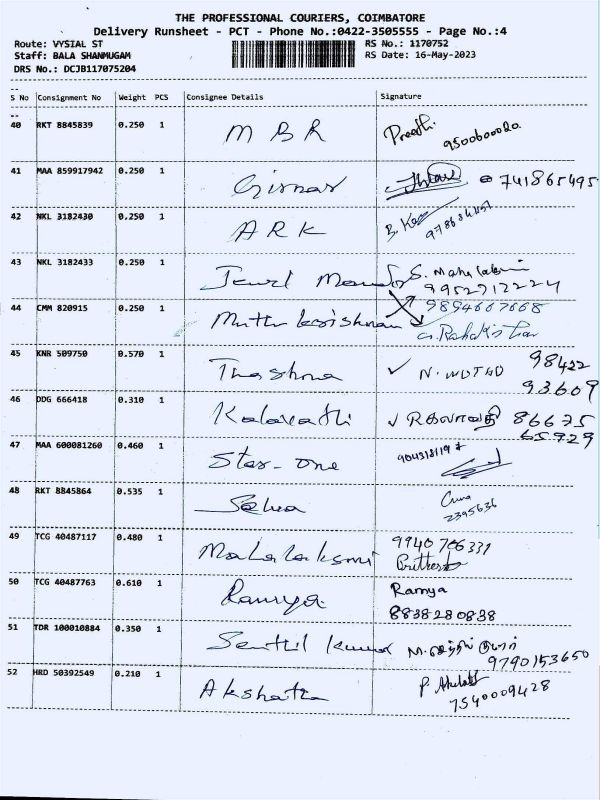 THE PROFESSIONAL COURIERS, COIMBATORE
Delivery Runsheet - PCT - Phone No.:0422-3505555 - Page No.:4
Route: VYSIAL ST RS No.: 1170752
Staff: BALA SHANMUGAM RS Date: 16-May-2023
DRS No.: DCJB117075204
S No Consignment No Weight PCS Consignee Details Signature
40 RKT 8845839 0.250 1 M B R Preethi
9500600020
41 MAA 859917942 0.250 1 741865495
42 NKL 3182430 0.250 1 A R K
43 NKL 3182433 0.250 1 S. Mahalakshmi
9952712224
44 CMM 820915 0.250 1 Muthu krishnan 9894667668
45 KNR 509750 0.570 1 98422
93609
46 DDG 666418 0.310 1 Kalavathi 86675
65929
47 MAA 600081260 0.460 1 Star-one
48 RKT 8845864 0.535 1
2395636
49 TCG 40487117 0.480 1 Mahalaksmi 9940766331
50 TCG 40487763 0.610 1 Ramya Ramya
8838280838
51 TDR 100010884 0.350 1 Senthil kumar M. செந்தில் குமார்
9790153650
52 HRD 50392549 0.210 1 Akshatra
7540009428